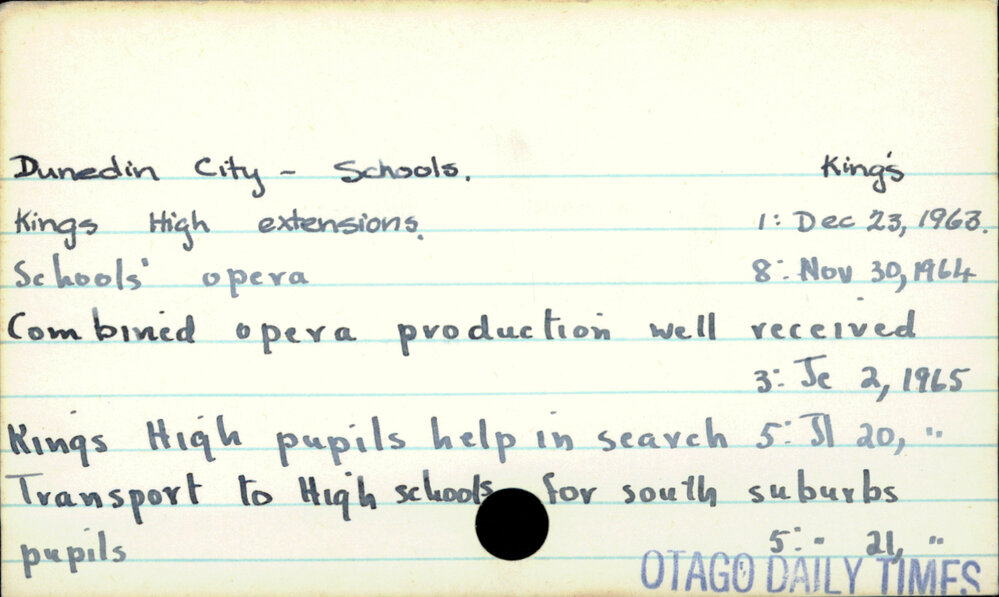 Dunedin City - Schools. King's
Kings High extensions. 1: Dec 23, 1963.
Schools' opera 8: Nov 30, 1964
Combined opera production well received
3: Je 2, 1965
Kings High pupils help in search 5: Jl 20, "
Transport to High schools for south suburbs
pupils 5: " 21, "
OTAGO DAILY TIMES